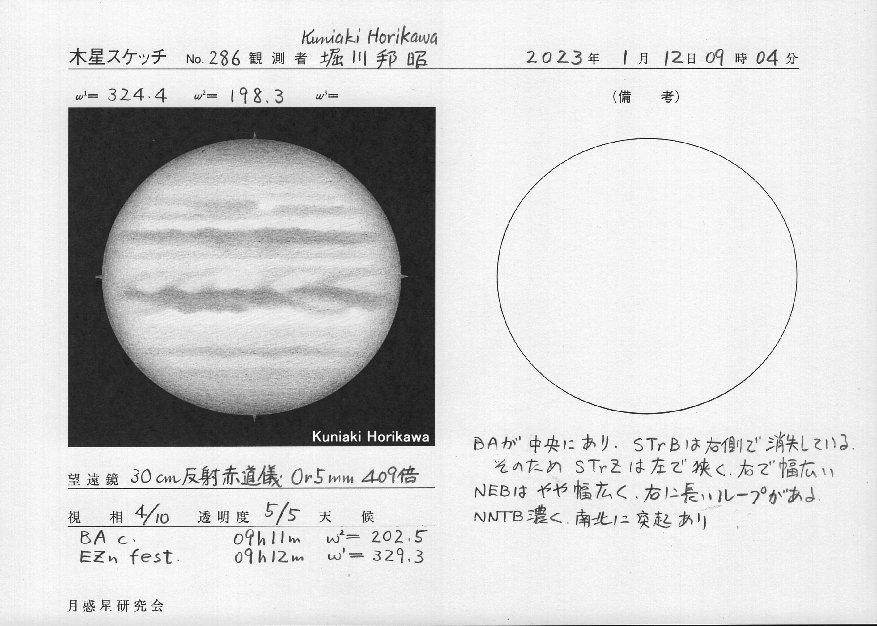 Kuniaki Horikawa
木星スケッチ No. 286 観測者 堀川邦昭 2023年 1月 12日 09時 04分
ω¹= 324.4 ω²= 198.3 ω³=
(備 考)
Kuniaki Horikawa
BAが中央にあり、STrBは右側で消失している。
そのためSTrZは左で狭く、右で幅広い
NEBはやや幅広く、右に長いループがある
NNTB濃く、南北に突起あり
望遠鏡 30cm反射赤道儀 Or5mm 409倍
視 相 4/10 透明度 5/5 天 候
BA c. 09h11m ω²= 202.5
EZn fest. 09h12m ω¹= 329.3
月惑星研究会